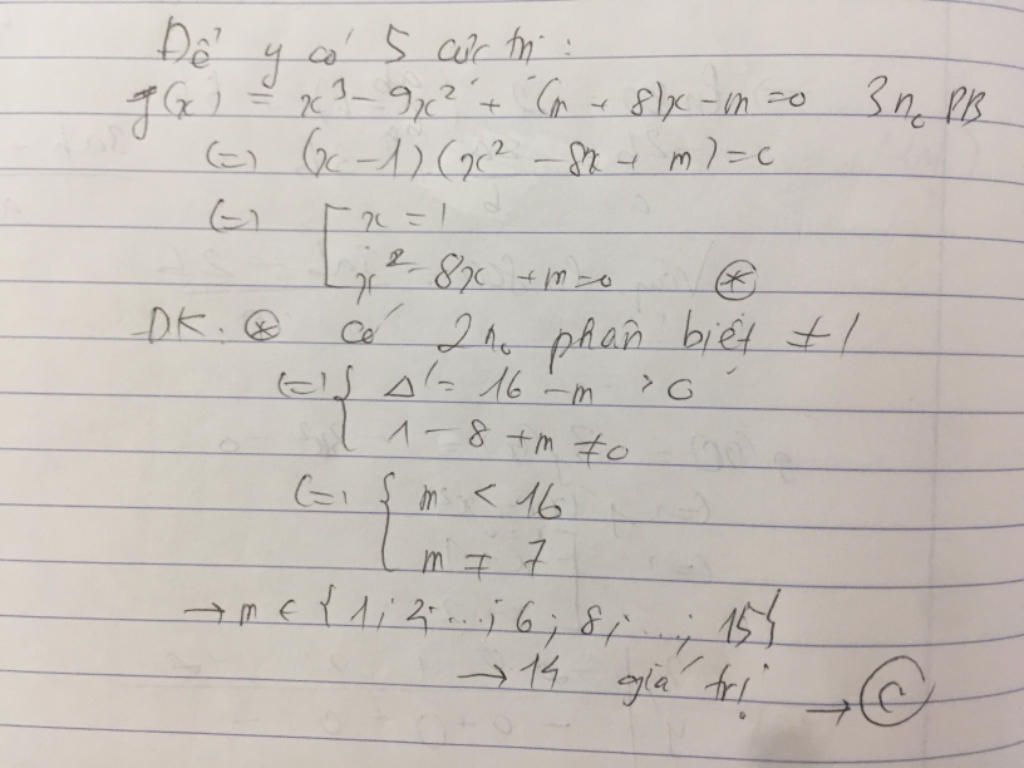 Để y có 5 cực trị :
g(x) = x³ - 9x² + (m + 8)x - m = 0 3 n₀ PB
(=) (x - 1)(x² - 8x + m) = 0
(=) [ x = 1
x² - 8x + m = 0 (*)
ĐK: (*) có 2 n₀ phân biệt ≠ 1
(=) { Δ' = 16 - m > 0
1 - 8 + m ≠ 0
(=) { m < 16
m ≠ 7
→ m ∈ { 1; 2; ...; 6; 8; ...; 15}
→ 14 giá trị → C